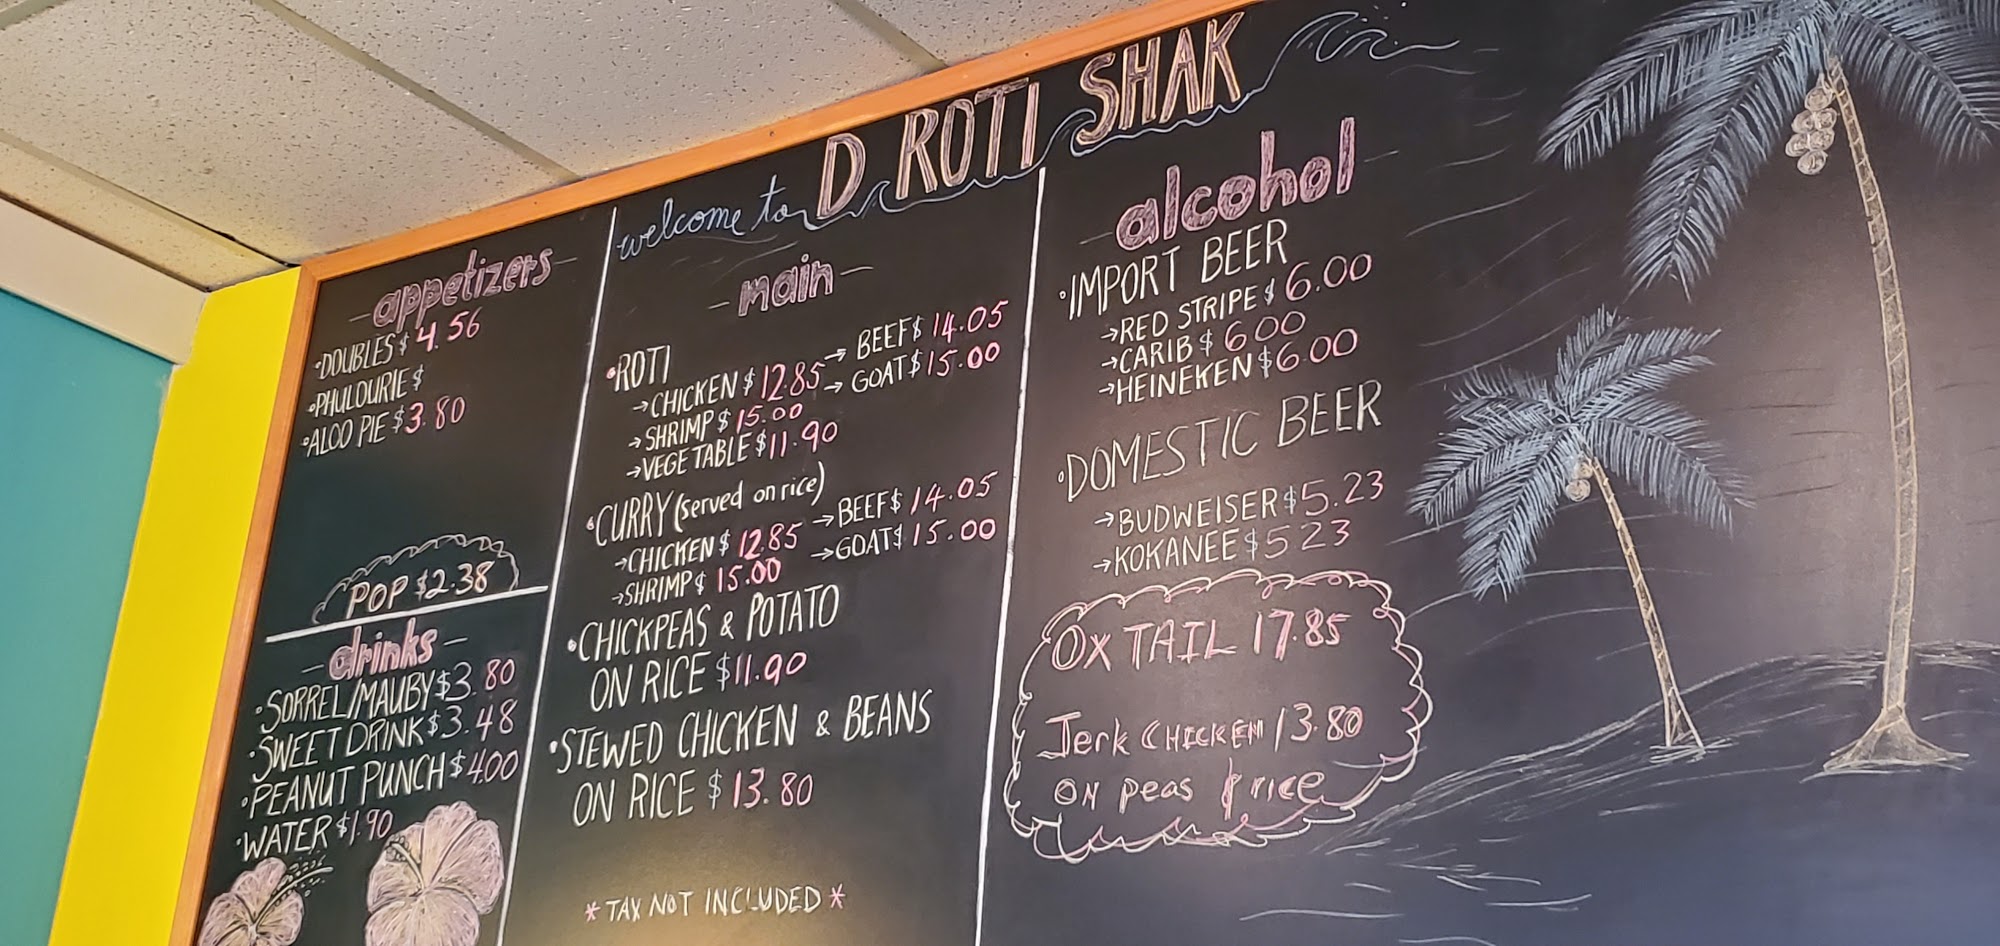 welcome to D ROTI SHAK
appetizers
•DOUBLES $4.56
•PHULOURIE $
•ALOO PIE $3.80
POP $2.38
drinks
•SORREL/MAUBY $3.80
•SWEET DRINK $3.48
•PEANUT PUNCH $4.00
•WATER $1.90
main
•ROTI
→CHICKEN $12.85 → BEEF $14.05
→SHRIMP $15.00 → GOAT $15.00
→VEGETABLE $11.90
•CURRY (served on rice)
→CHICKEN $12.85 →BEEF $14.05
→SHRIMP $15.00 →GOAT $15.00
•CHICKPEAS & POTATO
ON RICE $11.90
•STEWED CHICKEN & BEANS
ON RICE $13.80
*TAX NOT INCLUDED*
alcohol
•IMPORT BEER
→RED STRIPE $6.00
→CARIB $6.00
→HEINEKEN $6.00
•DOMESTIC BEER
→BUDWEISER $5.23
→KOKANEE $5.23
OX TAIL 17.85
Jerk CHICKEN 13.80
ON Peas & rice